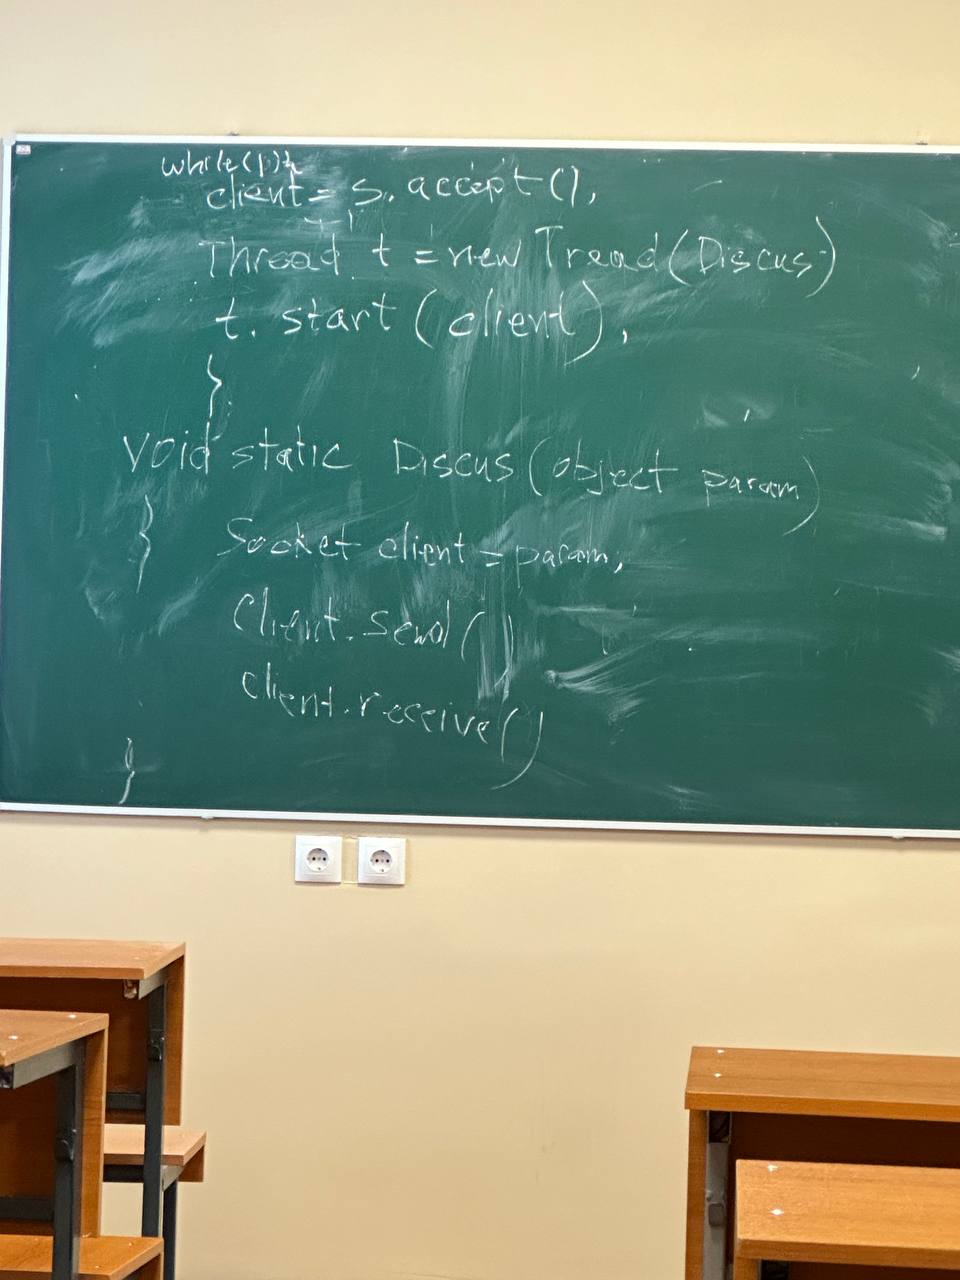 while(1){
client = s.accept();
Thread t = new Tread(Discus)
t.start(client);
}
void static Discus(object param)
{ Socket client = param;
Client.send()
client.receive()
}